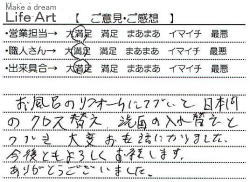 Make a dream
Life Art 【 ご意見・ご感想 】
・営業担当→ 大満足 満足 まあまあ イマイチ 最悪
・職人さん→ 大満足 満足 まあまあ イマイチ 最悪
・出来具合→ 大満足 満足 まあまあ イマイチ 最悪
お風呂のリフォームについで 日本間
のクロス替え 洗面の入れ替えと
つづき 大変お世話になりました。
今後ともよろしくお願いします。
ありがとうございました。